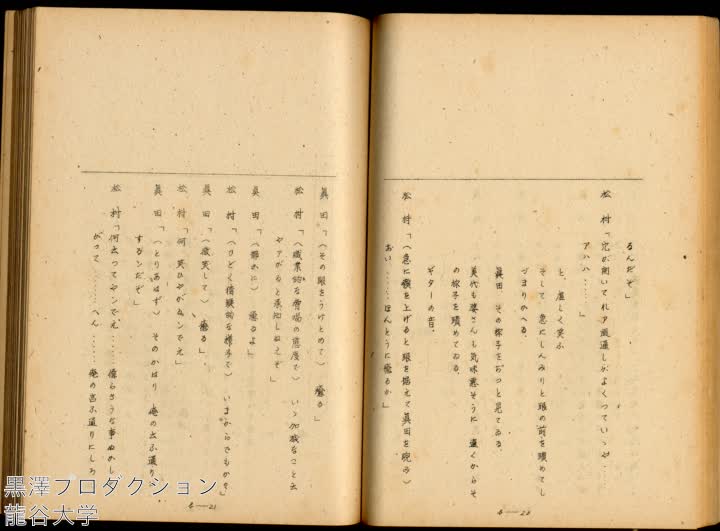 るんだぞ」
松 村「穴が開いてれア風通しがよくつていゝや……
アハハ……」
と、虚しく笑ふ
そして 急にしんみりと眼の前を瞶めてし
づまりかへる。
眞田 その様子をぢつと見てゐる。
美代も婆さんも気味悪そうに 遠くからそ
の様子を瞶めてゐる。
ギターの音。
松 村「(急に顔を上げると眼を据えて眞田を睨み)
おい ……ほんとうに癒るか」
6—22
眞 田「(その眼をうけとめて) 癒る」
松 村「(職業的な態度で) いゝ加減なこと云
やアがると承知しねえぞ」
眞 田「(静かに) 癒るよ」
松 村「(ひどく積極的な様子で) いまからでもか」
眞 田「(微笑して) 癒る」
松 村「何 笑ひやがるンでえ」
眞 田「(とりあはず) そのかはり 俺の云ふ通り
するンだぞ」
松 村「何云つてヤンでえ…… 偉らさうな事ぬかし
がつて……へん…… 俺の云ふ通りにしろ
6—23
黒澤プロダクション
龍谷大学